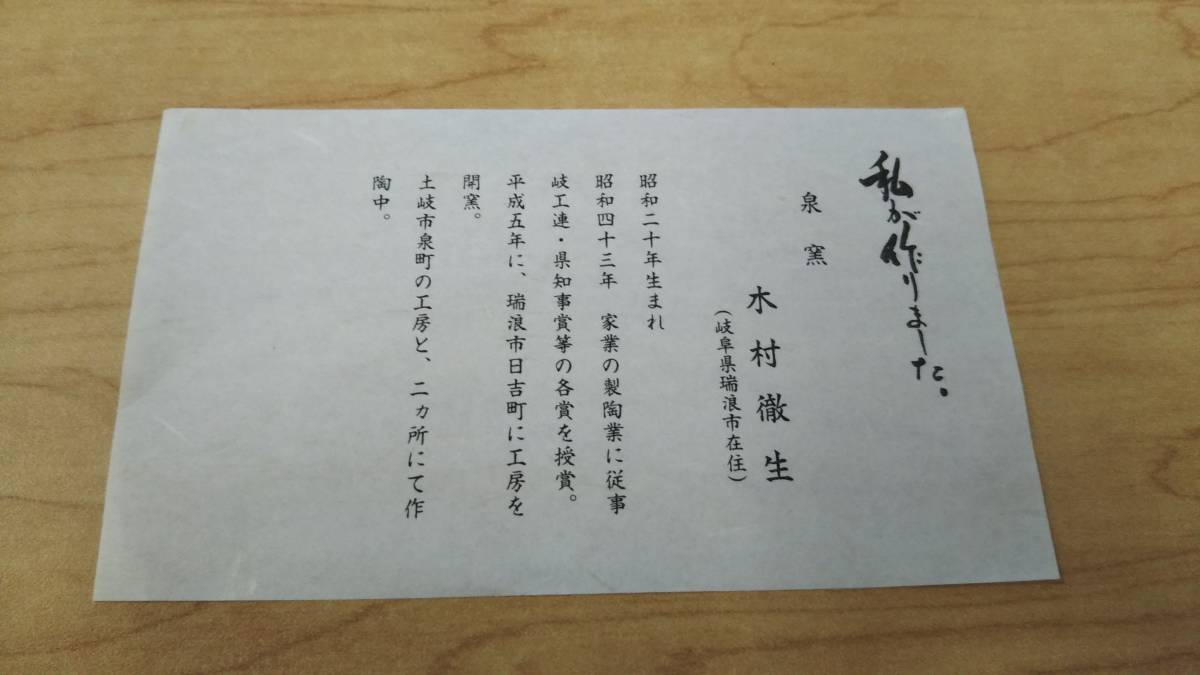 私が作りました。
泉窯
木村徹生
(岐阜県瑞浪市在住)
昭和二十年生まれ
昭和四十三年　家業の製陶業に従事
岐工連・県知事賞等の各賞を授賞。
平成五年に、瑞浪市日吉町に工房を
開窯。
土岐市泉町の工房と、二カ所にて作
陶中。